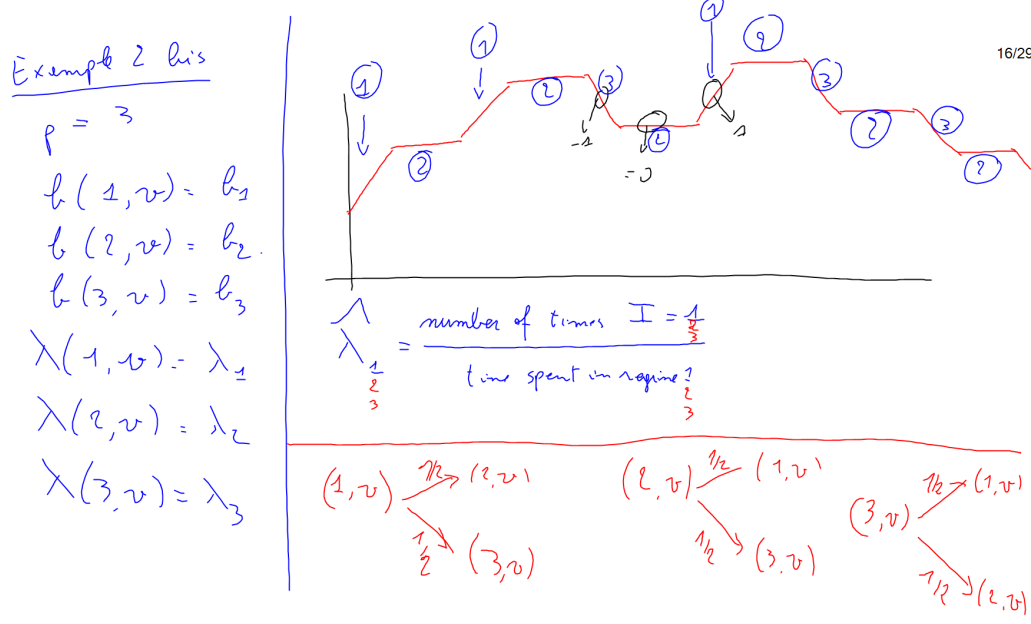 16/29
Exemple 2 bis
p = 3
b(1,v) = b1
b(2,v) = b2.
b(3,v) = b3
λ(1,v) = λ1
λ(2,v) = λ2
λ(3,v) = λ3
1
1
1
2
2
2
3
3
2
2
3
2
-1
= 0
1
λ̂ 1 2 3 = number of times I = 1 2 3
time spent in regime 1 2 3
(1,v) 1/2 (2,v)
1/2 (3,v)
(2,v) 1/2 (1,v)
1/2 (3,v)
(3,v) 1/2 (1,v)
1/2 (2,v)